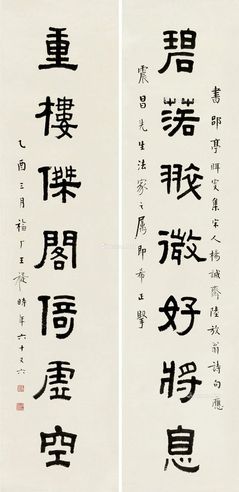 碧落澂微好將息
書郘亭冊叟集宋人楊誠齋陸放翁詩句應
震昌先生法家之属即希正擘
重樓傑閣倚虛空
乙酉三月福丁王禔時年六十又六